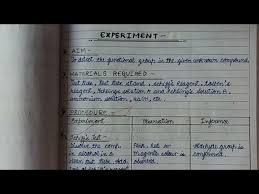 EXPERIMENT -
AIM -
To detect the functional group in the given unknown compound.
MATERIALS REQUIRED -
Test tube, Test tube stand, Schiff's Reagent, Tollen's
reagent, Fehling's solution A and Fehling's solution B,
ammonium solution, NaOH, etc.
PROCEDURE -
Experiment Observation Inference
Schiff's Test -
Dissolve the comp. Pink, Red or Aldehyde group is
in alcohol in a magenta colour is confirmed.
clean test tube. Add observed.